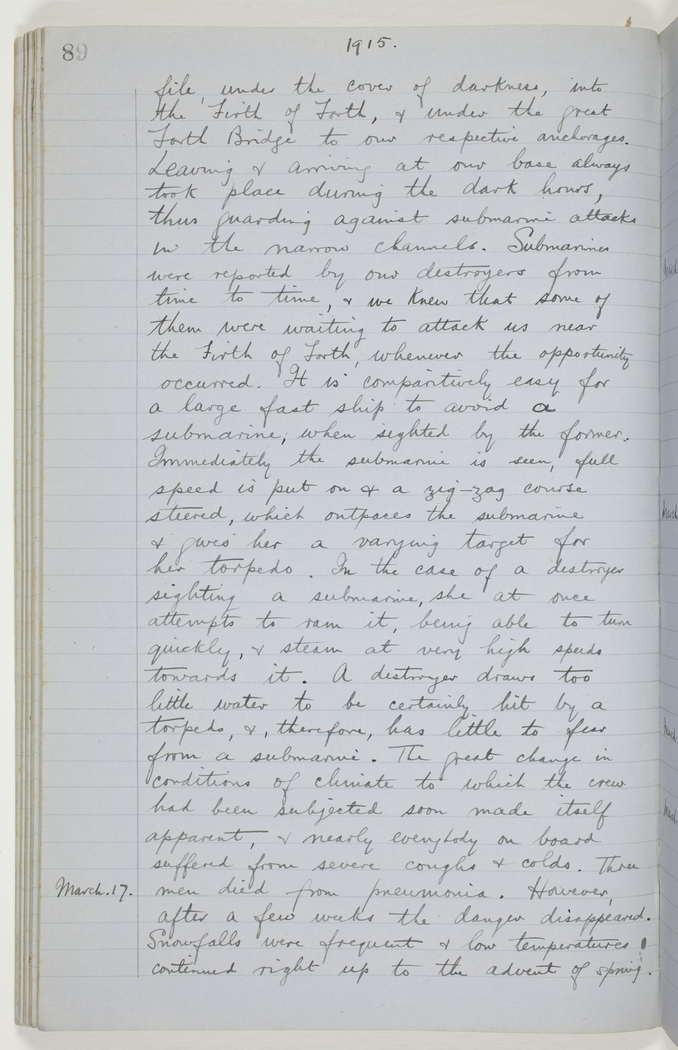 89
1915.
file, under the cover of darkness, into
the Firth of Forth, & under the great
Forth Bridge to our respective anchorages.
Leaving & arriving at our base always
took place during the dark hours,
thus guarding against submarine attacks
in the narrow channels. Submarines
were reported by our destroyers from
time to time, & we knew that some of
them were waiting to attack us near
the Firth of Forth, whenever the opportunity
occurred. It is comparitively easy for
a large fast ship to avoid a
submarine, when sighted by the former.
Immediately the submarine is seen, full
speed is put on & a zig-zag course
steered, which outpaces the submarine
& gives her a varying target for
her torpedo. In the case of a destroyer
sighting a submarine, she at once
attempts to ram it, being able to turn
quickly, & steam at very high speeds
towards it. A destroyer draws too
little water to be certainly hit by a
torpedo, &, therefore, has little to fear
from a submarine. The great change in
conditions of climate to which the crew
had been subjected soon made itself
apparent, & nearly everybody on board
suffered from severe coughs & colds. Three
March. 17. men died from pneumonia. However,
after a few weeks the danger disappeared.
Snowfalls were frequent & low temperatures
continued right up to the advent of spring.